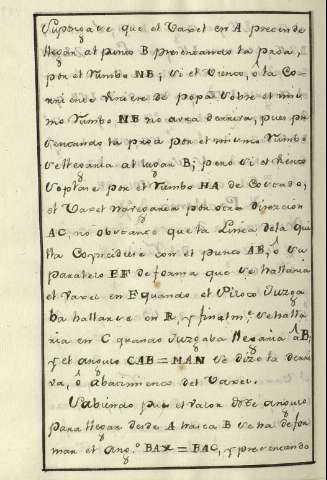 Supongase que el Vaxel en A pretende
llegar al punto B presentando la proa,
por el rumbo NB; si el viento, ô la Co-
rriente viniere de popa sobre el mis-
mo rumbo NB no avra derrota, pues pre-
sentando la proa por el mismo rumbo
se llegaria al lugar B; pero si el viento
soplase por el rumbo HA de Costado,
el Vaxel navegaria por otra direccion
AC, no obstante que la Linea de la qui-
lla Coyncidiese con el punto AB, ô su
paralelo EF de forma que se hallaria
el Vaxel en F quando el Piloto Juzga
ba hallarse en R, y finalm.e se halla
ria en C quando Juzgaba llegaria âB,
y el angulo CAB = MAN se dize la derri-
va, ô abatimiento del Vaxel.
Sabiendo pues el valor deste angulo
para llegar desde A hasta B se ha de for
mar el ang.o BAX = BAC, y presentando